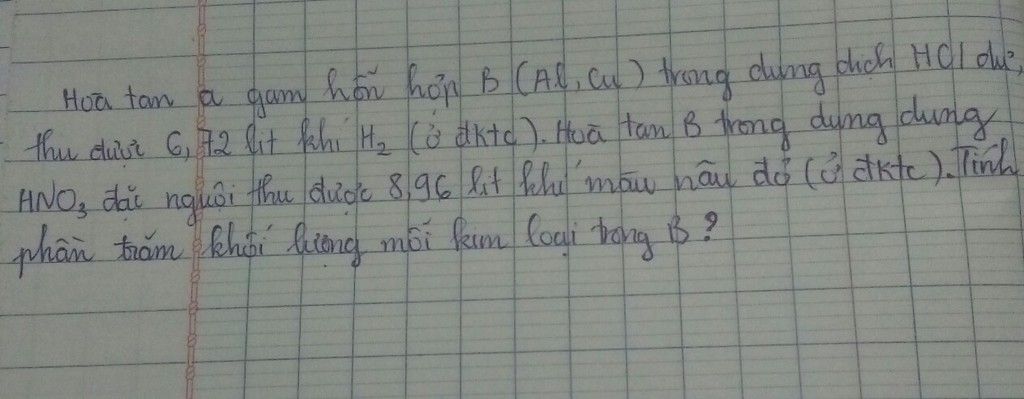 Hoà tan a gam hỗn hợp B (Al, Cu) trong dung dịch HCl dư,
thu được 6,72 lít khí H₂ (ở đktc). Hoà tan B trong dụng dung
HNO₃ đặc nguội thu được 8,96 lít khí màu nâu đỏ (ở đktc). Tính
phần trăm khối lượng mỗi kim loại trong B?